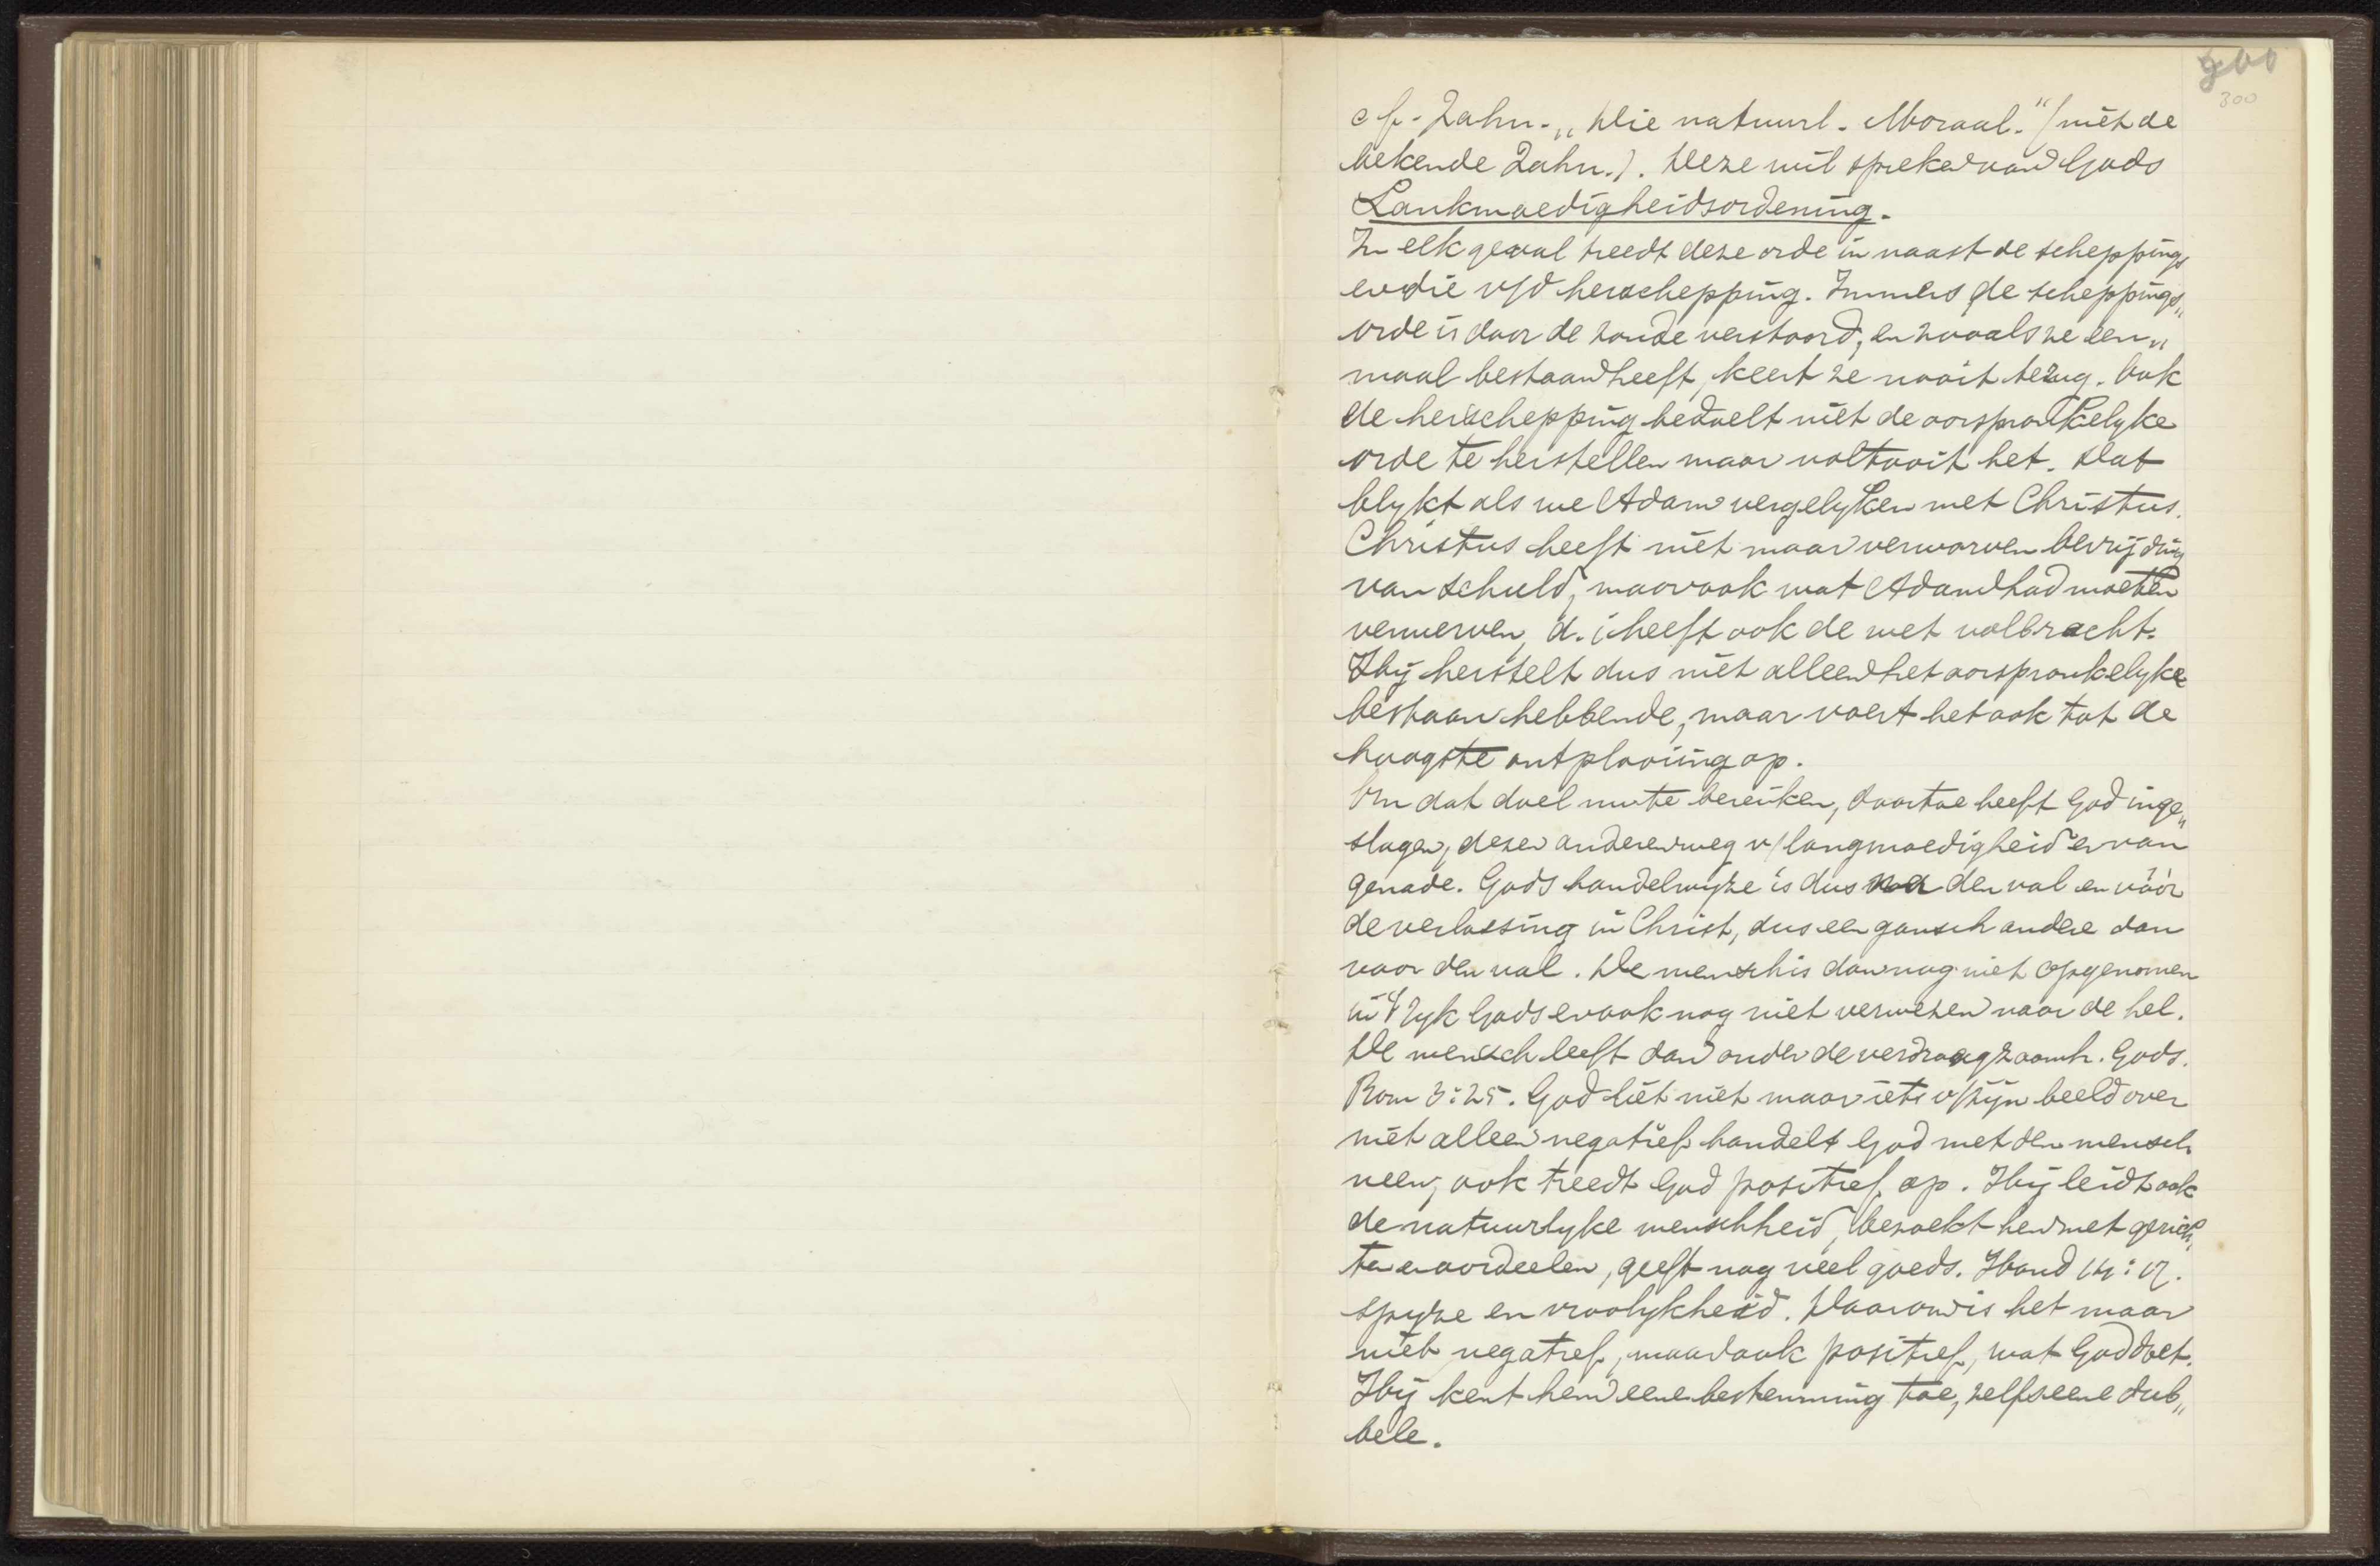 300
cf. Zahn. „Die natuurl. Moraal." (niet de
bekende Zahn.). Deze wil spreken van Gods
Lankmoedigheidsordening.
In elk geval treedt deze orde in naast de scheppings
en die v/d herschepping. Immers de scheppings„
orde is door de zonde verstoord, en zooals ze een„
maal bestaan heeft, keert ze nooit terug. Ook
de herschepping bedoelt niet de oorspronkelyke
orde te herstellen maar voltooit het. Dat
blykt als we Adam vergelyken met Christus.
Christus heeft niet maar verworven bevrijding
van schuld, maar ook wat Adam had moeten
verwerven, d.i. heeft ook de wet volbracht.
Hij herstelt dus niet alleen het oorspronkelyke
bestaan hebbende, maar voert het ook tot de
hoogste ontplooiing op.
Om dat doel nu te bereiken, daartoe heeft God inge„
slagen, dezen anderen weg v/ langmoedigheid en van
genade. Gods handelwyze is dus na den val en vóór
de verlossing in Christ, dus een gansch andere dan
voor den val. De mensch is dan nog niet opgenomen
in 't ryk Gods en ook nog niet verwezen naar de hel.
De mensch leeft dan onder de verdraagzaamh. Gods.
Rom 3:25. God liet niet maar iets v/ zijn beeld over
niet alleen negatief handelt God met den mensch
neen, ook treedt God positief op. Hij leidt ook
de natuurlyke menschheid, bezoekt hen met gerich„
ten en oordeelen, geeft nog veel goeds. Hand 14:17.
spyze en vroolykheid. Daarom is het maar
niet negatief, maar ook positief, wat God doet.
Hij kent hem eene bestemming toe, zelfs eene dub„
bele.